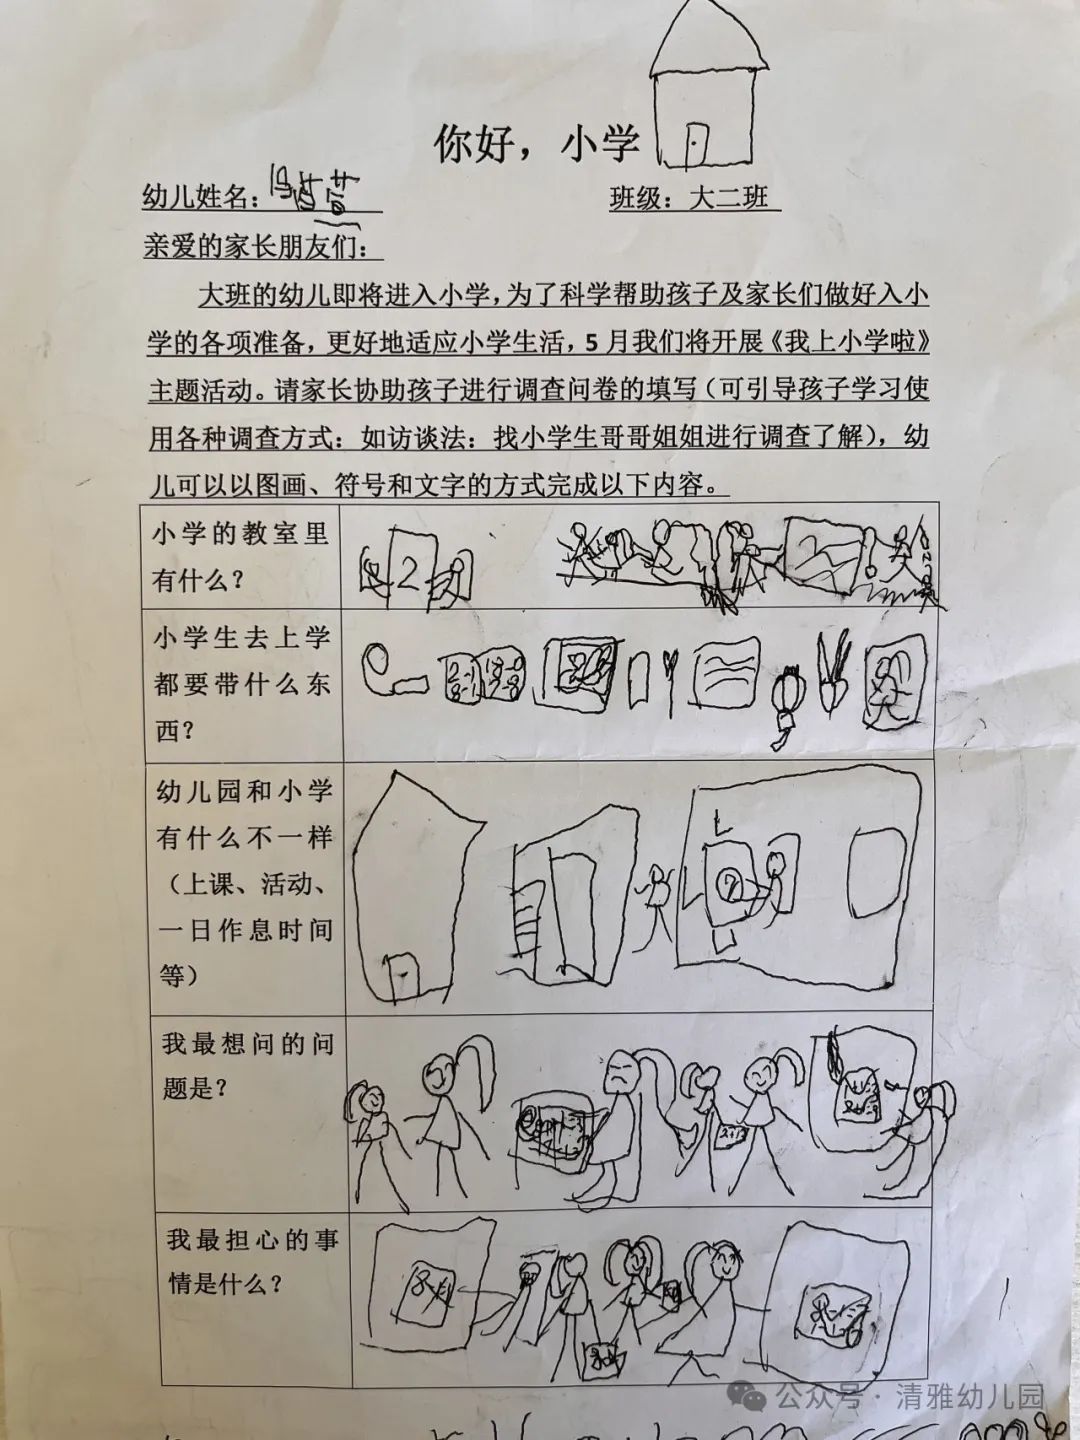 你好，小学
幼儿姓名：
班级：大二班
亲爱的家长朋友们：
大班的幼儿即将进入小学，为了科学帮助孩子及家长们做好入小
学的各项准备，更好地适应小学生活，5月我们将开展《我上小学啦》
主题活动。请家长协助孩子进行调查问卷的填写（可引导孩子学习使
用各种调查方式：如访谈法：找小学生哥哥姐姐进行调查了解），幼
儿可以以图画、符号和文字的方式完成以下内容。
小学的教室里
有什么？
2
小学生去上学
都要带什么东
西？
幼儿园和小学
有什么不一样
（上课、活动、
一日作息时间
等）
我最想问的问
题是？
我最担心的事
情是什么？
公众号·清雅幼儿园